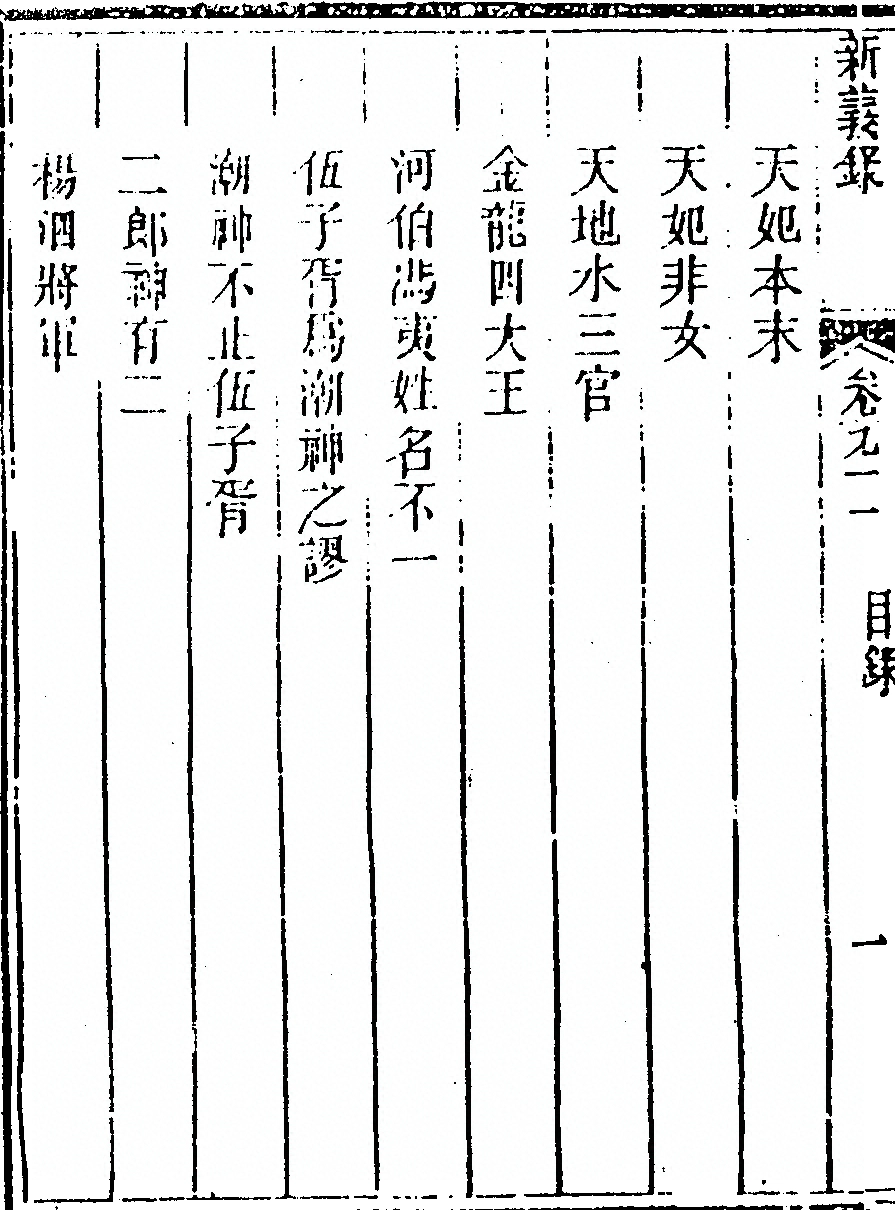 新義錄 卷九二 目錄 一
天妃本末
天妃非女
天地水三官
金龍四大王
河伯馮夷姓名不一
伍子胥爲潮神之謬
潮神不止伍子胥
二郎神有二
楊泗將軍